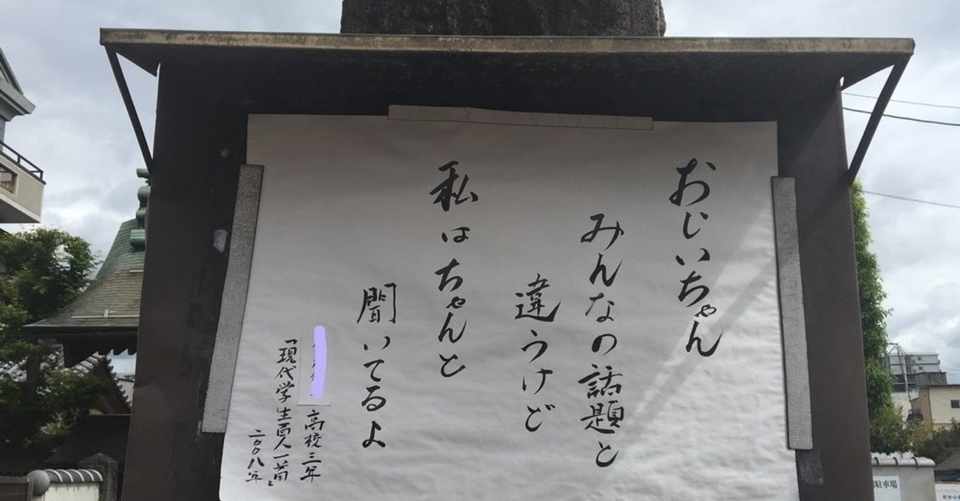 おじいちゃん
みんなの話題と
違うけど
私はちゃんと
聞いてるよ
高校三年
「現代学生百人一首」
二〇〇八年
駐車場